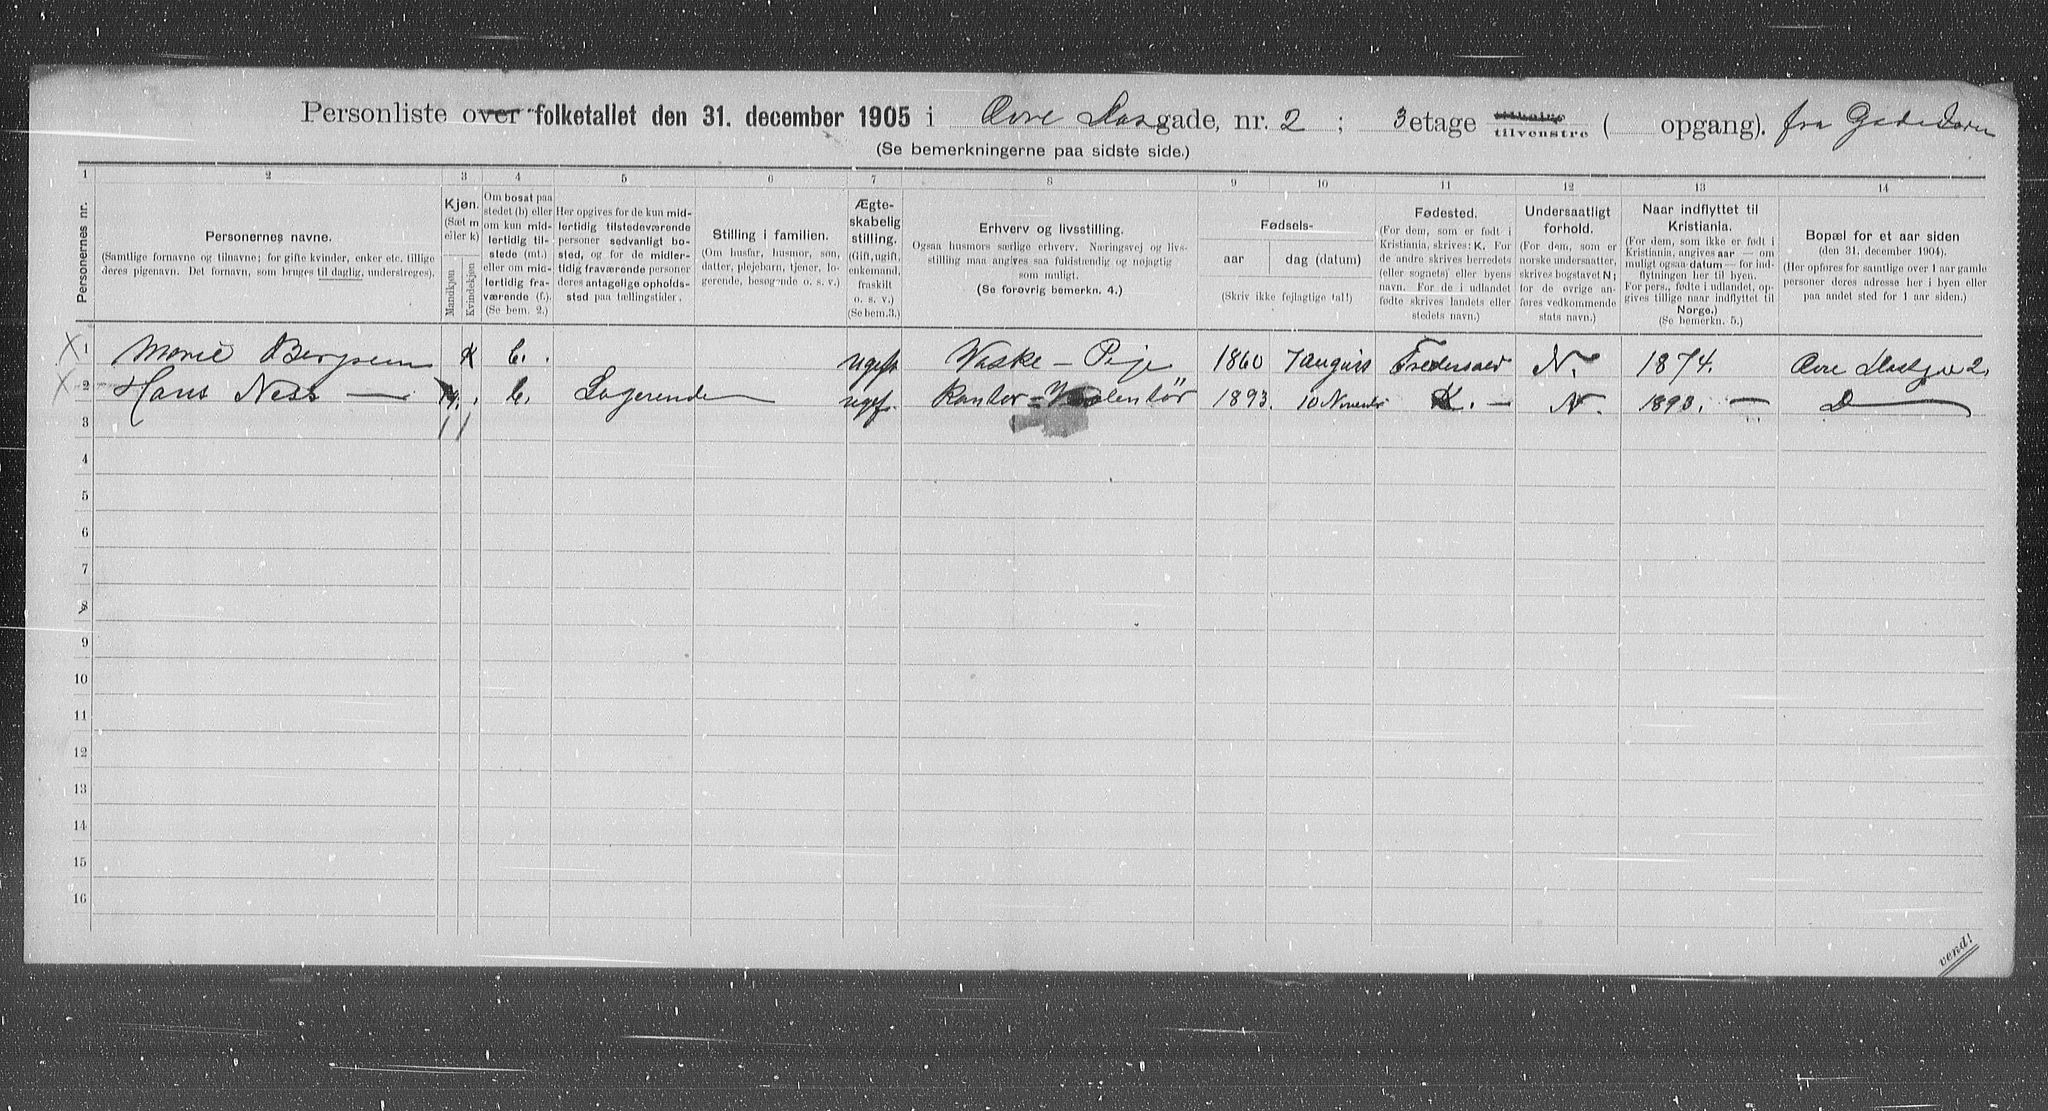 Personliste over folketallet den 31. december 1905 i Øvre Slotsgade, nr. 2 ; 3 etage tilhøire tilvenstre ( opgang). fra Gadedøren
(Se bemerkningerne paa sidste side.)
1 2 3 4 5 6 7 8 9 10 11 12 13 14
Personernes nr.
Personernes navne.
(Samtlige fornavne og tilnavne; for gifte kvinder, enker etc. tillige
deres pigenavn. Det fornavn, som bruges til daglig, understreges).
Kjøn.
(Sæt m
eller k)
Mandkjøn
Kvindekjøn
Om bosat paa
stedet (b) eller
om kun mid-
lertidig til-
stede (mt.)
eller om mid-
lertidig fra-
værende (f.).
(Se bem. 2.)
Her opgives for de kun mid-
lertidig tilstedeværende
personer sedvanligt bo-
sted, og for de midler-
tidig fraværende personer
deres antagelige opholds-
sted paa tællingstider.
Stilling i familien.
(Om husfar, husmor, søn,
datter, plejebarn, tjener, lo-
gerende, besøgende o. s. v.)
Ægte-
skabelig
stilling.
(Gift, ugift,
enkemand,
fraskilt
o. s. v.)
(Se bem.3.)
Erhverv og livsstilling.
Ogsaa husmors særlige erhverv. Næringsvej og livs-
stilling maa angives saa fuldstændig og nøjagtig
som muligt.
(Se forøvrig bemerkn. 4.)
Fødsels-
aar dag (datum)
(Skriv ikke fejlagtige tal!)
Fødested.
(For dem, som er født i
Kristiania, skrives: K. For
de andre skrives herredets
(eller sognets) eller byens
navn. For de i udlandet
fødte skrives landets eller
stedets navn.)
Undersaatligt
forhold.
(For dem, som er
norske undersaatter,
skrives bogstavet N;
for de øvrige an-
føres vedkommende
stats navn.)
Naar indflyttet til
Kristiania.
(For dem, som ikke er født i
Kristiania, angives aar — om
muligt ogsaa datum — for ind-
flytningen her til byen.
For pers., fødte i udlandet, op-
gives tillige naar indflyttet til
Norge.)
(Se bemerkn. 5.)
Bopæl for et aar siden
(den 31. december 1904).
(Her opføres for samtlige over 1 aar gamle
personer deres adresse her i byen eller
paa andet sted for 1 aar siden.)
X 1 Marie Bergsem K b. ugift Vaske - Pige 1860 7 august N. 1874. Øvre Slotsg 2.
X 2 Hans Ness — M. b. Logerende ugift. Kontor - 1893. 10 November K. — N. 1893. — D —
3
4
5
6
7
8
9
10
11
12
13
14
15
16
vend!